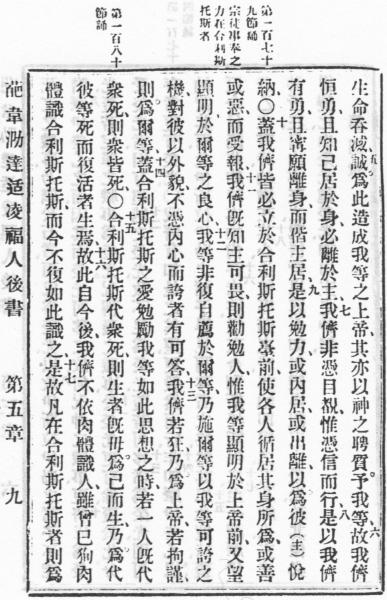 第一百七十
九節誦
宗徒事奉之
力在合利斯
托斯者
第一百八十
節誦
生命吞滅五誠爲此造成我等之上帝其亦以神之聘質予我等六故我儕
恒勇且知己居於身必離於主七我儕非憑目覩惟憑信而行八是以我儕
有勇且甯願離身而偕主居九是以勉力或內居或出離以爲彼(主)悅
納○十蓋我儕皆必立於合利斯托斯臺前使各人循居其身所爲或善
或惡而受報十一我儕旣知主可畏則勸勉人惟我等顯明於上帝前又望
顯明於爾等之良心十二我等非復自薦於爾等乃施爾等以我等可誇之
機對彼以外貌不憑內心而誇者有可答十三我儕若狂乃爲上帝若拘謹
則爲爾等十四蓋合利斯托斯之愛勉勵我等如此思想之時若一人旣代
衆死則衆皆死○十五合利斯托斯代衆死則生者旣毋爲己而生乃爲代
彼等死而復活者生焉十六故此自今後我儕不依肉體識人雖曾已狥肉
體識合利斯托斯而今不復如此識之十七是故凡在合利斯托斯者則爲
葩韋泐達适凌福人後書 第五章 九